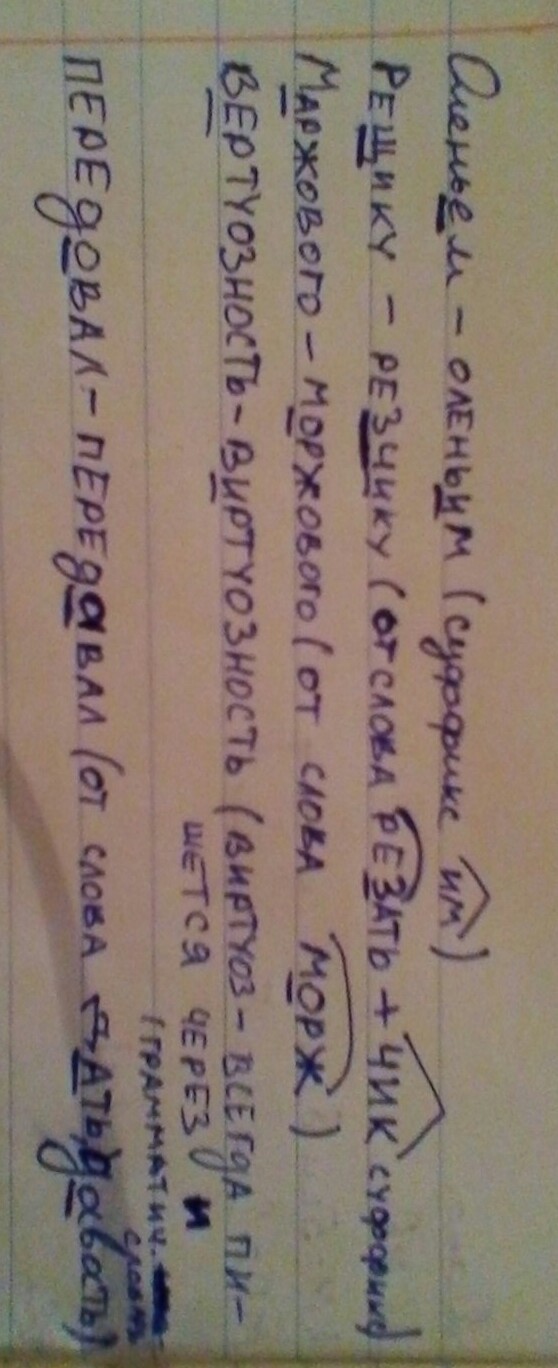 Оленьем - оленьим (суффикс им)
РЕЩИКУ - РЕЗЧИКУ (от слова РЕЗАТЬ + ЧИК суффикс)
МАРЖОВОГО - МОРЖОВОГО (от слова МОРЖ)
ВЕРТУОЗНОСТЬ - ВИРТУОЗНОСТЬ (ВИРТУОЗ - ВСЕГДА ПИ-
ШЕТСЯ ЧЕРЕЗ И
(ГРАММАТИЧ.
ПЕРЕДОВАЛ - ПЕРЕДАВАЛ (от слова ДАТЬ, давать)